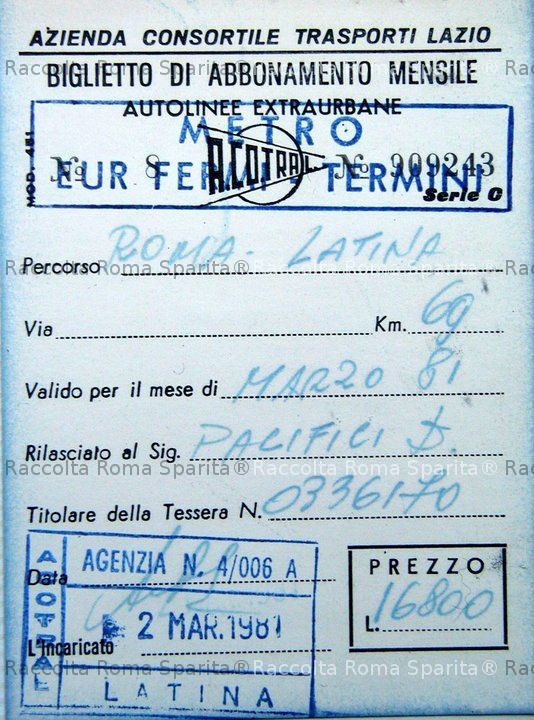 AZIENDA CONSORTILE TRASPORTI LAZIO
Raccolta Roma Sparita® Raccolta Roma Sparita® Racco
BIGLIETTO DI ABBONAMENTO MENSILE
AUTOLINEE EXTRAURBANE
METRO
MOD. 451
No 8 A.CO.TRA.L. No 909243
EUR FERMI - TERMINI
Serie C
Percorso ROMA - LATINA
Raccolta Roma Sparita® Raccolta Roma Sparita® Racco
Via Km. 69
Valido per il mese di MARZO 81
Rilasciato al Sig. PACIFICI D.
Raccolta Roma Sparita® Raccolta Roma Sparita® Racco
Titolare della Tessera N. 0336170
ACOTRAL
AGENZIA N. 4/006 A
Data
PREZZO
L. 16800
2 MAR. 1981
L'Incaricato
Raccolta Roma Sparita® Raccolta Roma Sparita® Racco
LATINA